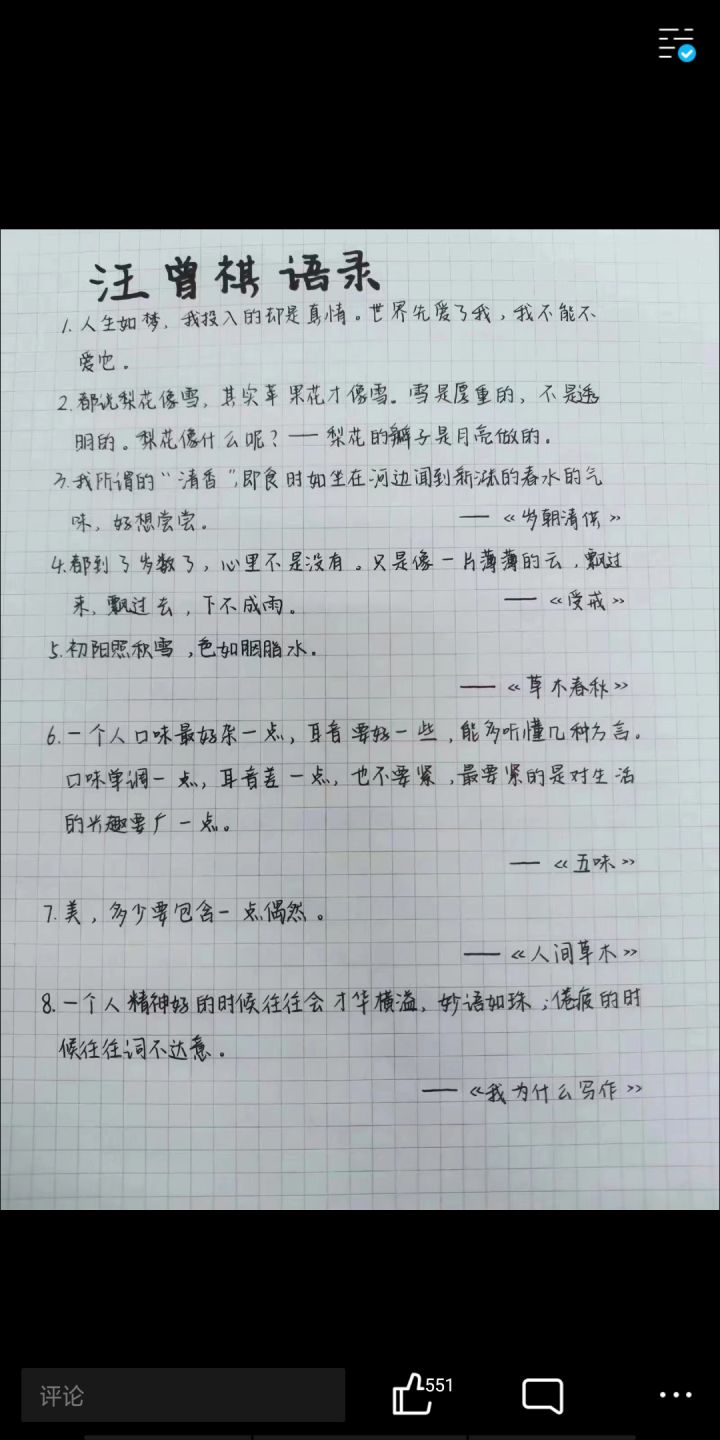 汪曾棋语录
1. 人生如梦，我投入的却是真情。世界先爱了我，我不能不
爱它。
2. 都说梨花像雪，其实苹果花才像雪。雪是厚重的，不是透
明的。梨花像什么呢？—— 梨花的瓣子是月亮做的。
3. 我所谓的“清香”，即食时如坐在河边闻到新涨的春水的气
味，好想尝尝。 ——《岁朝清供》
4. 都到了岁数了，心里不是没有。只是像一片薄薄的云，飘过
来，飘过去，下不成雨。 ——《受戒》
5. 初阳照积雪，色如胭脂水。
——《草木春秋》
6. 一个人口味最好杂一点，耳音要好一些，能多听懂几种方言。
口味单调一点，耳音差一点，也不要紧，最要紧的是对生活
的兴趣要广一点。
——《五味》
7. 美，多少要包含一点偶然。
——《人间草木》
8. 一个人精神好的时候往往会才华横溢，妙语如珠；倦疲的时
候往往词不达意。
——《我为什么写作》
评论
551